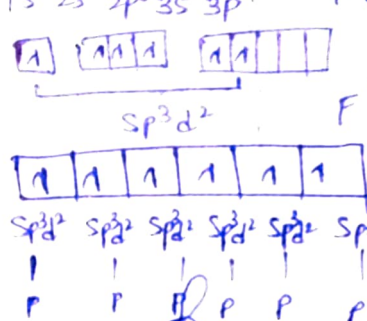 3s 3p
1 1 1 1 1 1
sp³d²
F
1 1 1 1 1 1
sp³d² sp³d² sp³d² sp³d² sp³d² sp
p p p p p